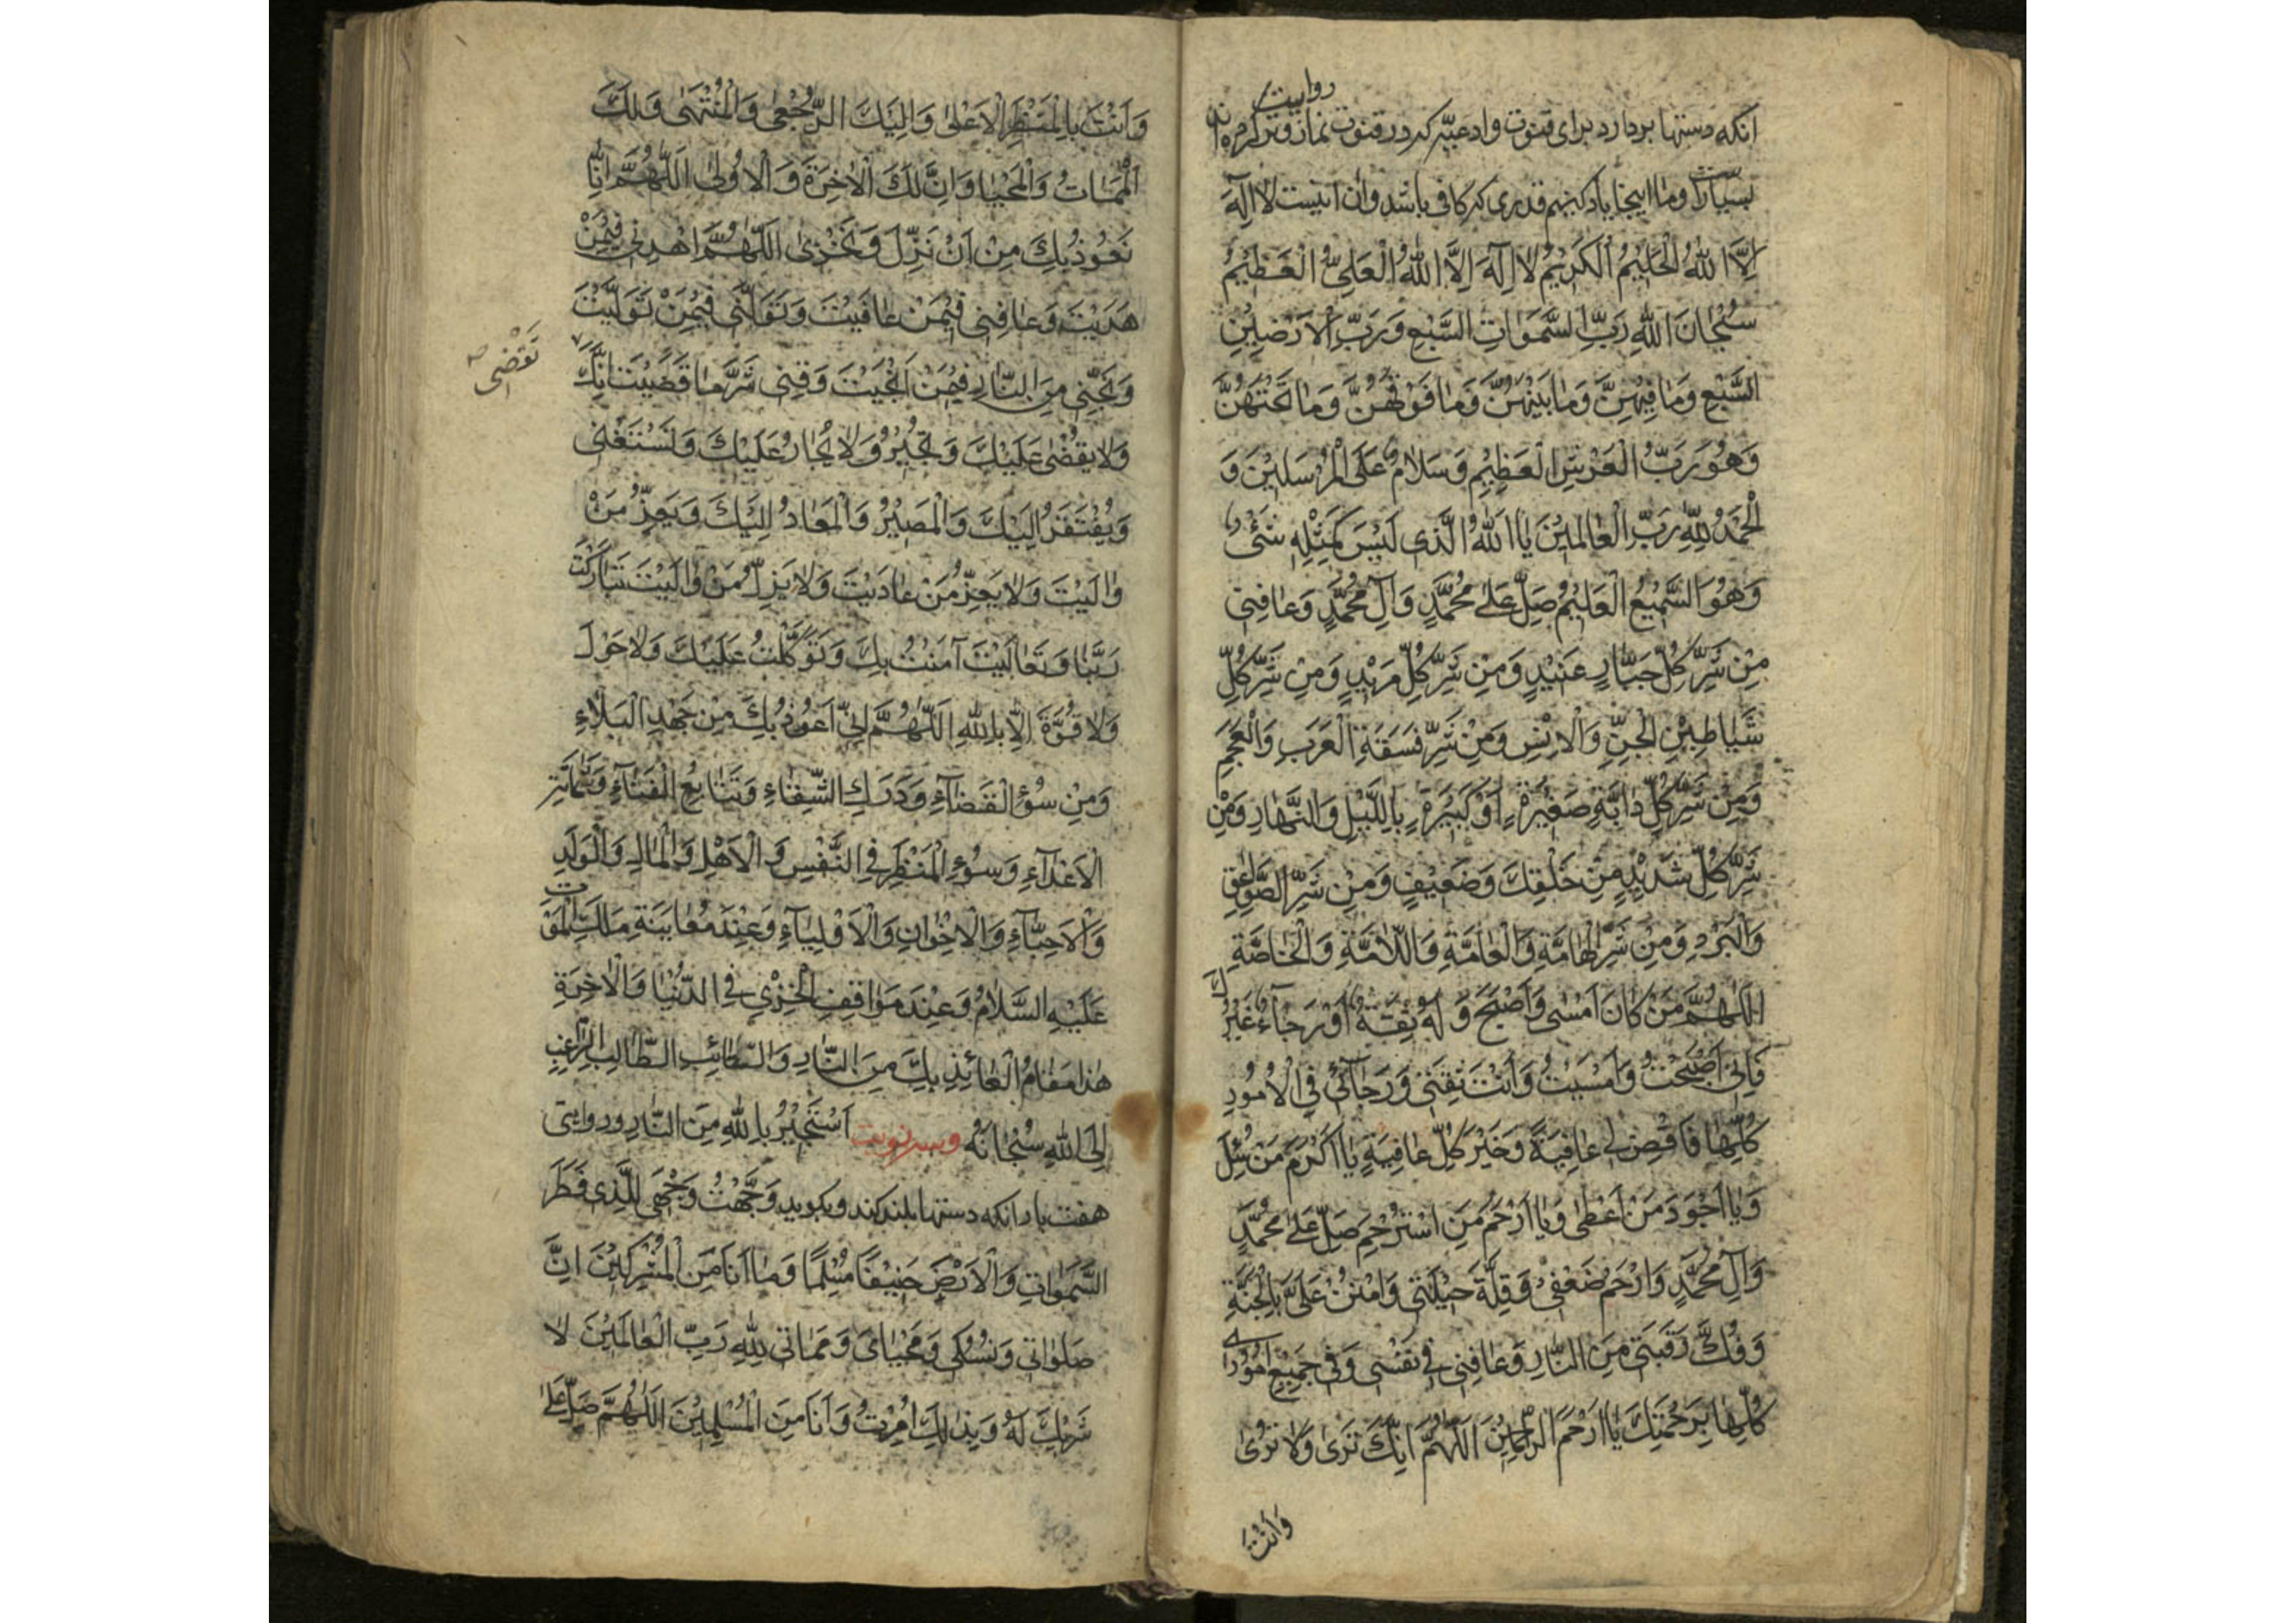 روایت
انکه دستها بردارد برای قنوت وادعیه که در قنوت نماز وتر کرده اند
بسیار است وما اینجا یاد کنیم قدری که کافی باشد وان اینست لا اِلٰهَ
اِلَّا اللّٰهُ الْحَلِيْمُ الْكَرِيْمُ لا اِلٰهَ اِلَّا اللّٰهُ الْعَلِىُّ الْعَظِيْمُ
سُبْحٰانَ اللّٰهِ رَبِّ السَّمٰوَاتِ السَّبْعِ وَرَبِّ الْاَرَضِيْنَ
السَّبْعِ وَمٰا فِيْهِنَّ وَمٰا بَيْنَهُنَّ وَمٰا فَوْقَهُنَّ وَمٰا تَحْتَهُنَّ
وَهُوَ رَبُّ الْعَرْشِ الْعَظِيْمِ وَسَلٰامٌ عَلَى الْمُرْسَلِيْنَ وَ
الْحَمْدُ لِلّٰهِ رَبِّ الْعٰالَمِيْنَ يٰا اَللّٰهُ الَّذِى لَيْسَ كَمِثْلِهِ شَئٌ
وَهُوَ السَّمِيْعُ الْعَلِيْمُ صَلِّ عَلىٰ مُحَمَّدٍ وَآلِ مُحَمَّدٍ وَعٰافِنِى
مِنْ شَرِّ كُلِّ جَبّٰارٍ عَنِيْدٍ وَمِنْ شَرِّ كُلِّ مَرِيْدٍ وَمِنْ شَرِّ كُلِّ
شَيٰاطِيْنِ الْجِنِّ وَالْاِنْسِ وَمِنْ شَرِّ فَسَقَةِ الْعَرَبِ وَالْعَجَمِ
وَمِنْ شَرِّ كُلِّ دٰابَّةٍ صَغِيْرَةٍ اَوْ كَبِيْرَةٍ بِاللَّيْلِ وَالنَّهٰارِ وَمِنْ
شَرِّ كُلِّ شَدِيْدٍ مِنْ خَلْقِكَ وَضَعِيْفٍ وَمِنْ شَرِّ الصَّوٰاعِقِ
وَالْبَرَدِ وَمِنْ شَرِّ الْهٰامَّةِ وَالْعٰامَّةِ وَاللّٰامَّةِ وَالْخٰاصَّةِ
اَللّٰهُمَّ مَنْ كٰانَ اَمْسٰى وَاَصْبَحَ وَ لَهُ ثِقَةٌ اَوْ رَجٰاءٌ غَيْرُكَ
فَاِنِّى اَصْبَحْتُ وَاَمْسَيْتُ وَاَنْتَ ثِقَتِى وَرَجٰآئِى فِى الْاُمُورِ
كُلِّهٰا فَاقْضِ لِى عٰافِيَةً وَخَيْرَ كُلِّ عٰافِيَةٍ يٰا اَكْرَمَ مَنْ سُئِلَ
وَيٰا اَجْوَدَ مَنْ اَعْطٰى وَيٰا اَرْحَمَ مَنِ اسْتُرْحِمَ صَلِّ عَلىٰ مُحَمَّدٍ
وَآلِ مُحَمَّدٍ وَارْحَمْ ضَعْفِى وَقِلَّةَ حِيْلَتِى وَامْنُنْ عَلَىَّ بِالْجَنَّةِ
وَفُكَّ رَقَبَتِى مِنَ النّٰارِ وَعٰافِنِى فِى نَفْسِى وَفِى جَمِيْعِ اُمُوْرِى
كُلِّهٰا بِرَحْمَتِكَ يٰا اَرْحَمَ الرّٰحِمِيْنَ اَللّٰهُمَّ اِنَّكَ تَرٰى وَلٰا تُرٰى
وَاَنْتَ
وَاَنْتَ بِالْمَنْظَرِ الْاَعْلىٰ وَاِلَيْكَ الرُّجْعٰى وَالْمُنْتَهٰى وَلَكَ
الْمَمٰاتُ وَالْمَحْيٰا وَاِنَّ لَكَ الْاٰخِرَةَ وَالْاُولٰى اَللّٰهُمَّ اِنّٰا
نَعُوْذُ بِكَ مِنْ اَنْ نَذِلَّ وَنَخْزٰى اَللّٰهُمَّ اهْدِنِى فِيْمَنْ
هَدَيْتَ وَعٰافِنِى فِيْمَنْ عٰافَيْتَ وَتَوَلَّنِى فِيْمَنْ تَوَلَّيْتَ
وَنَجِّنِى مِنَ النّٰارِ فِيْمَنْ اَنْجَيْتَ وَقِنِى شَرَّ مٰا قَضَيْتَ اِنَّكَ
تَقْضِى
وَلٰا يُقْضٰى عَلَيْكَ وَتُجِيْرُ وَلٰا يُجٰارُ عَلَيْكَ وَتَسْتَغْنِى
وَيُفْتَقَرُ اِلَيْكَ وَالْمَصِيْرُ وَالْمَعٰادُ اِلَيْكَ وَيَعِزُّ مَنْ
وٰالَيْتَ وَلٰا يَعِزُّ مَنْ عٰادَيْتَ وَلٰا يَذِلُّ مَنْ وٰالَيْتَ تَبٰارَكْتَ
رَبَّنٰا وَتَعٰالَيْتَ آمَنْتُ بِكَ وَتَوَكَّلْتُ عَلَيْكَ وَلٰا حَوْلَ
وَلٰا قُوَّةَ اِلّٰا بِاللّٰهِ اَللّٰهُمَّ اِنِّى اَعُوْذُ بِكَ مِنْ جَهْدِ الْبَلٰاءِ
وَمِنْ سُوْءِ الْقَضٰآءِ وَدَرَكِ الشِّقٰاءِ وَتَتٰابُعِ الْفَنٰآءِ وَشَمٰاتَةِ
الْاَعْدٰآءِ وَسُوْءِ الْمَنْظَرِ فِى النَّفْسِ وَالْاَهْلِ وَالْمٰالِ وَالْوَلَدِ
وَالْاَحِبّٰآءِ وَالْاِخْوٰانِ وَالْاَوْلِيٰآءِ وَعِنْدَ مُعٰايَنَةِ مَلَكِ الْمَوْتِ
عَلَيْهِ السَّلٰامُ وَعِنْدَ مَوٰاقِفِ الْخِزْىِ فِى الدُّنْيٰا وَالْاٰخِرَةِ
هٰذٰا مَقٰامُ الْعٰائِذِ بِكَ مِنَ النّٰارِ وَالتّٰائِبِ الطّٰالِبِ الرّٰاغِبِ
اِلَى اللّٰهِ سُبْحٰانَهُ وسه نوبت اَسْتَجِيْرُ بِاللّٰهِ مِنَ النّٰارِ ودر روایتی
هفت بار انکه دستها بلند کند وبکوید وَجَّهْتُ وَجْهِىَ لِلَّذِى فَطَرَ
السَّمٰوٰاتِ وَالْاَرْضَ حَنِيْفًا مُسْلِمًا وَمٰا اَنَا مِنَ الْمُشْرِكِيْنَ اِنَّ
صَلٰوتِى وَنُسُكِى وَمَحْيٰاىَ وَمَمٰاتِى لِلّٰهِ رَبِّ الْعٰالَمِيْنَ لٰا
شَرِيْكَ لَهُ وَبِذٰلِكَ اُمِرْتُ وَاَنَا مِنَ الْمُسْلِمِيْنَ اَللّٰهُمَّ صَلِّ عَلىٰ